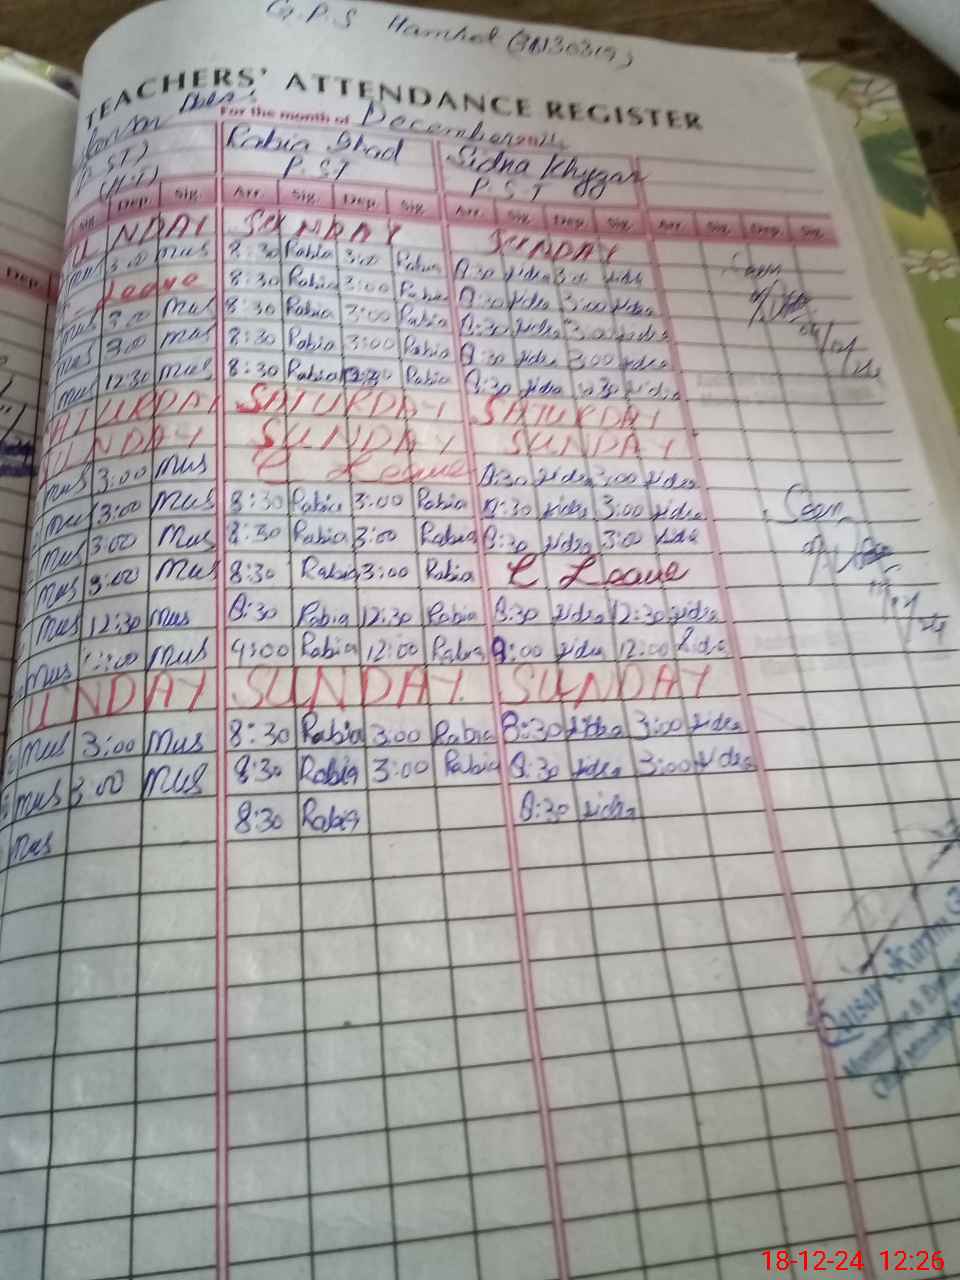 G.P.S Hamhot
TEACHERS' ATTENDANCE REGISTER
For the month of December
Rabia P.S.T
Sidra P.S.T
(H.T)
Sig. Dep. Sig. Arr. Sig. Dep. Sig. Arr. Sig. Dep. Sig. Arr. Sig. Dep. Sig.
UNDAY SUNDAY SUNDAY
mus 3:00 mus 8:30 Rabia 3:00 Rabia 8:30 sidra 3:00 sidra Seen
Leave 8:30 Rabia 3:00 Rabia 8:30 sidra 3:00 sidra
mus 3:00 mus 8:30 Rabia 3:00 Rabia 8:30 sidra 3:00 sidra
mus 3:00 mus 8:30 Rabia 3:00 Rabia 8:30 sidra 3:00 sidra
mus 12:30 mus 8:30 Rabia 12:30 Rabia 8:30 sidra 12:30 sidra
ATURDAY SATURDAY SATURDAY
UNDAY SUNDAY SUNDAY
mus 3:00 mus C Leave 8:30 sidra 3:00 sidra
mus 3:00 mus 8:30 Rabia 3:00 Rabia 8:30 sidra 3:00 sidra Seen
mus 3:00 mus 8:30 Rabia 3:00 Rabia 8:30 sidra 3:00 sidra
mus 3:00 mus 8:30 Rabia 3:00 Rabia C Leave
mus 12:30 mus 8:30 Rabia 12:30 Rabia 8:30 sidra 12:30 sidra
mus 12:00 mus 9:00 Rabia 12:00 Rabia 9:00 sidra 12:00 sidra
UNDAY SUNDAY SUNDAY
mus 3:00 mus 8:30 Rabia 3:00 Rabia 8:30 sidra 3:00 sidra
mus 3:00 mus 8:30 Rabia 3:00 Rabia 8:30 sidra 3:00 sidra
mus 8:30 Rabia 8:30 sidra
18-12-24 12:26